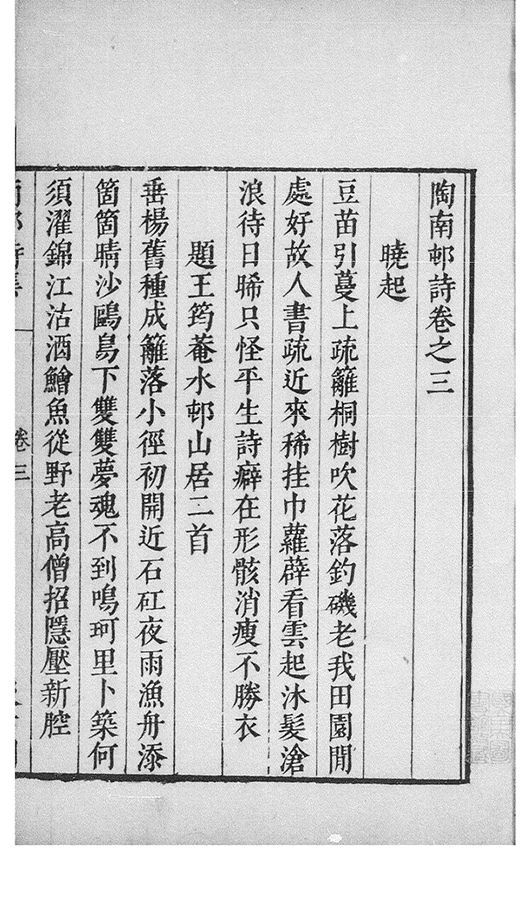 陶南邨詩卷之三
曉起
豆苗引蔓上疏籬桐樹吹花落釣磯老我田園閒
處好故人書疏近來稀挂巾蘿薜看雲起沐髮滄
浪待日晞只怪平生詩癖在形骸消瘦不勝衣
題王筠菴水邨山居二首
垂楊舊種成籬落小徑初開近石矼夜雨漁舟添
箇箇晴沙鷗鳥下雙雙夢魂不到鳴珂里卜築何
須濯錦江沽酒鱠魚從野老高僧招隱壓新腔
卷三